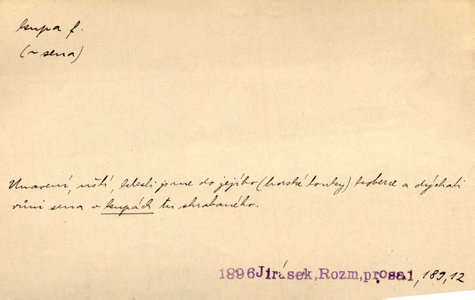 kupa f.
(~ sena)
Unavení, ustí, klesli jsme do jejího (horské louky) koberce a dýchali
vůni sena v kupách tu shrabaného.
1896 Jirásek, Rozm, prosa 1, 189, 12